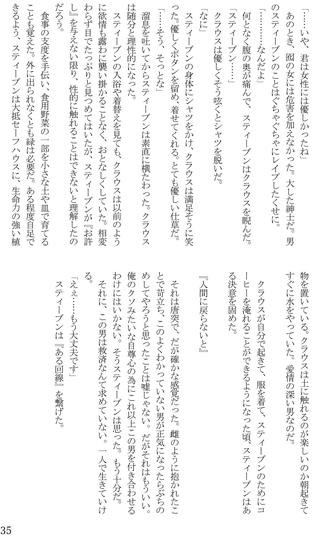 「……いや、君は女性には優しかったね」
あのとき、囮の女には危害を加えなかった。大した紳士だ。男
のスティーブンのことはぐちゃぐちゃにレイプしたくせに。
「……なんだよ」
何となく腹の奥が痛んで、スティーブンはクラウスを睨んだ。
「スティーブン……」
クラウスは優しくそう呟くとシャツを脱いだ。
「なに」
スティーブンの身体にシャツをかけ、クラウスは満足そうに笑
った。優しくボタンを留め、着せてくれる。とても優しい仕草だ。
「……そう、そっとな」
溜息を吐いてからスティーブンは素直に横たわった。クラウス
は随分と理性的になった。
スティーブンの入浴や着替えを見ても、クラウスは以前のよう
に欲情も露わに襲い掛かることなく、おとなしくしていた。相変
わらず目でたっぷりと見つめてはいたが、スティーブンが『お許
し』を与えない限り、性的に触れることはできないと理解したの
だろう。
食事の支度を手伝い、食用野菜の一部を小さな土や皿で育てる
ことも覚えた。外に出られなくとも緑は必要だ。ある程度自足で
きるよう、スティーブンは大抵セーフハウスに、生命力の強い植
物を置いている。クラウスは土に触れるのが楽しいのか朝起きて
すぐに水をやっていた。愛情の深い男なのだ。
クラウスが自分で起きて、服を着て、スティーブンのためにコ
ーヒーを淹れることができるようになった頃、スティーブンはあ
る決意を固めた。
『人間に戻らないと』
それは唐突で、だが確かな感覚だった。雌のように抱かれたこ
とで苛立ち、このよくわかっていない男が正気になったらぶちの
めしてやろうと思ったことは嘘じゃない。だがそれはもういい。
俺のクソみたいな自尊心の為にこれ以上この男を付き合わせる
わけにはいかない。そうスティーブンは思った。もう十分だ。
それに、この男は救済なんて求めていない。一人で生きていけ
る。
「えぇ……もう大丈夫です」
スティーブンは『ある回線』を繋げた。
35